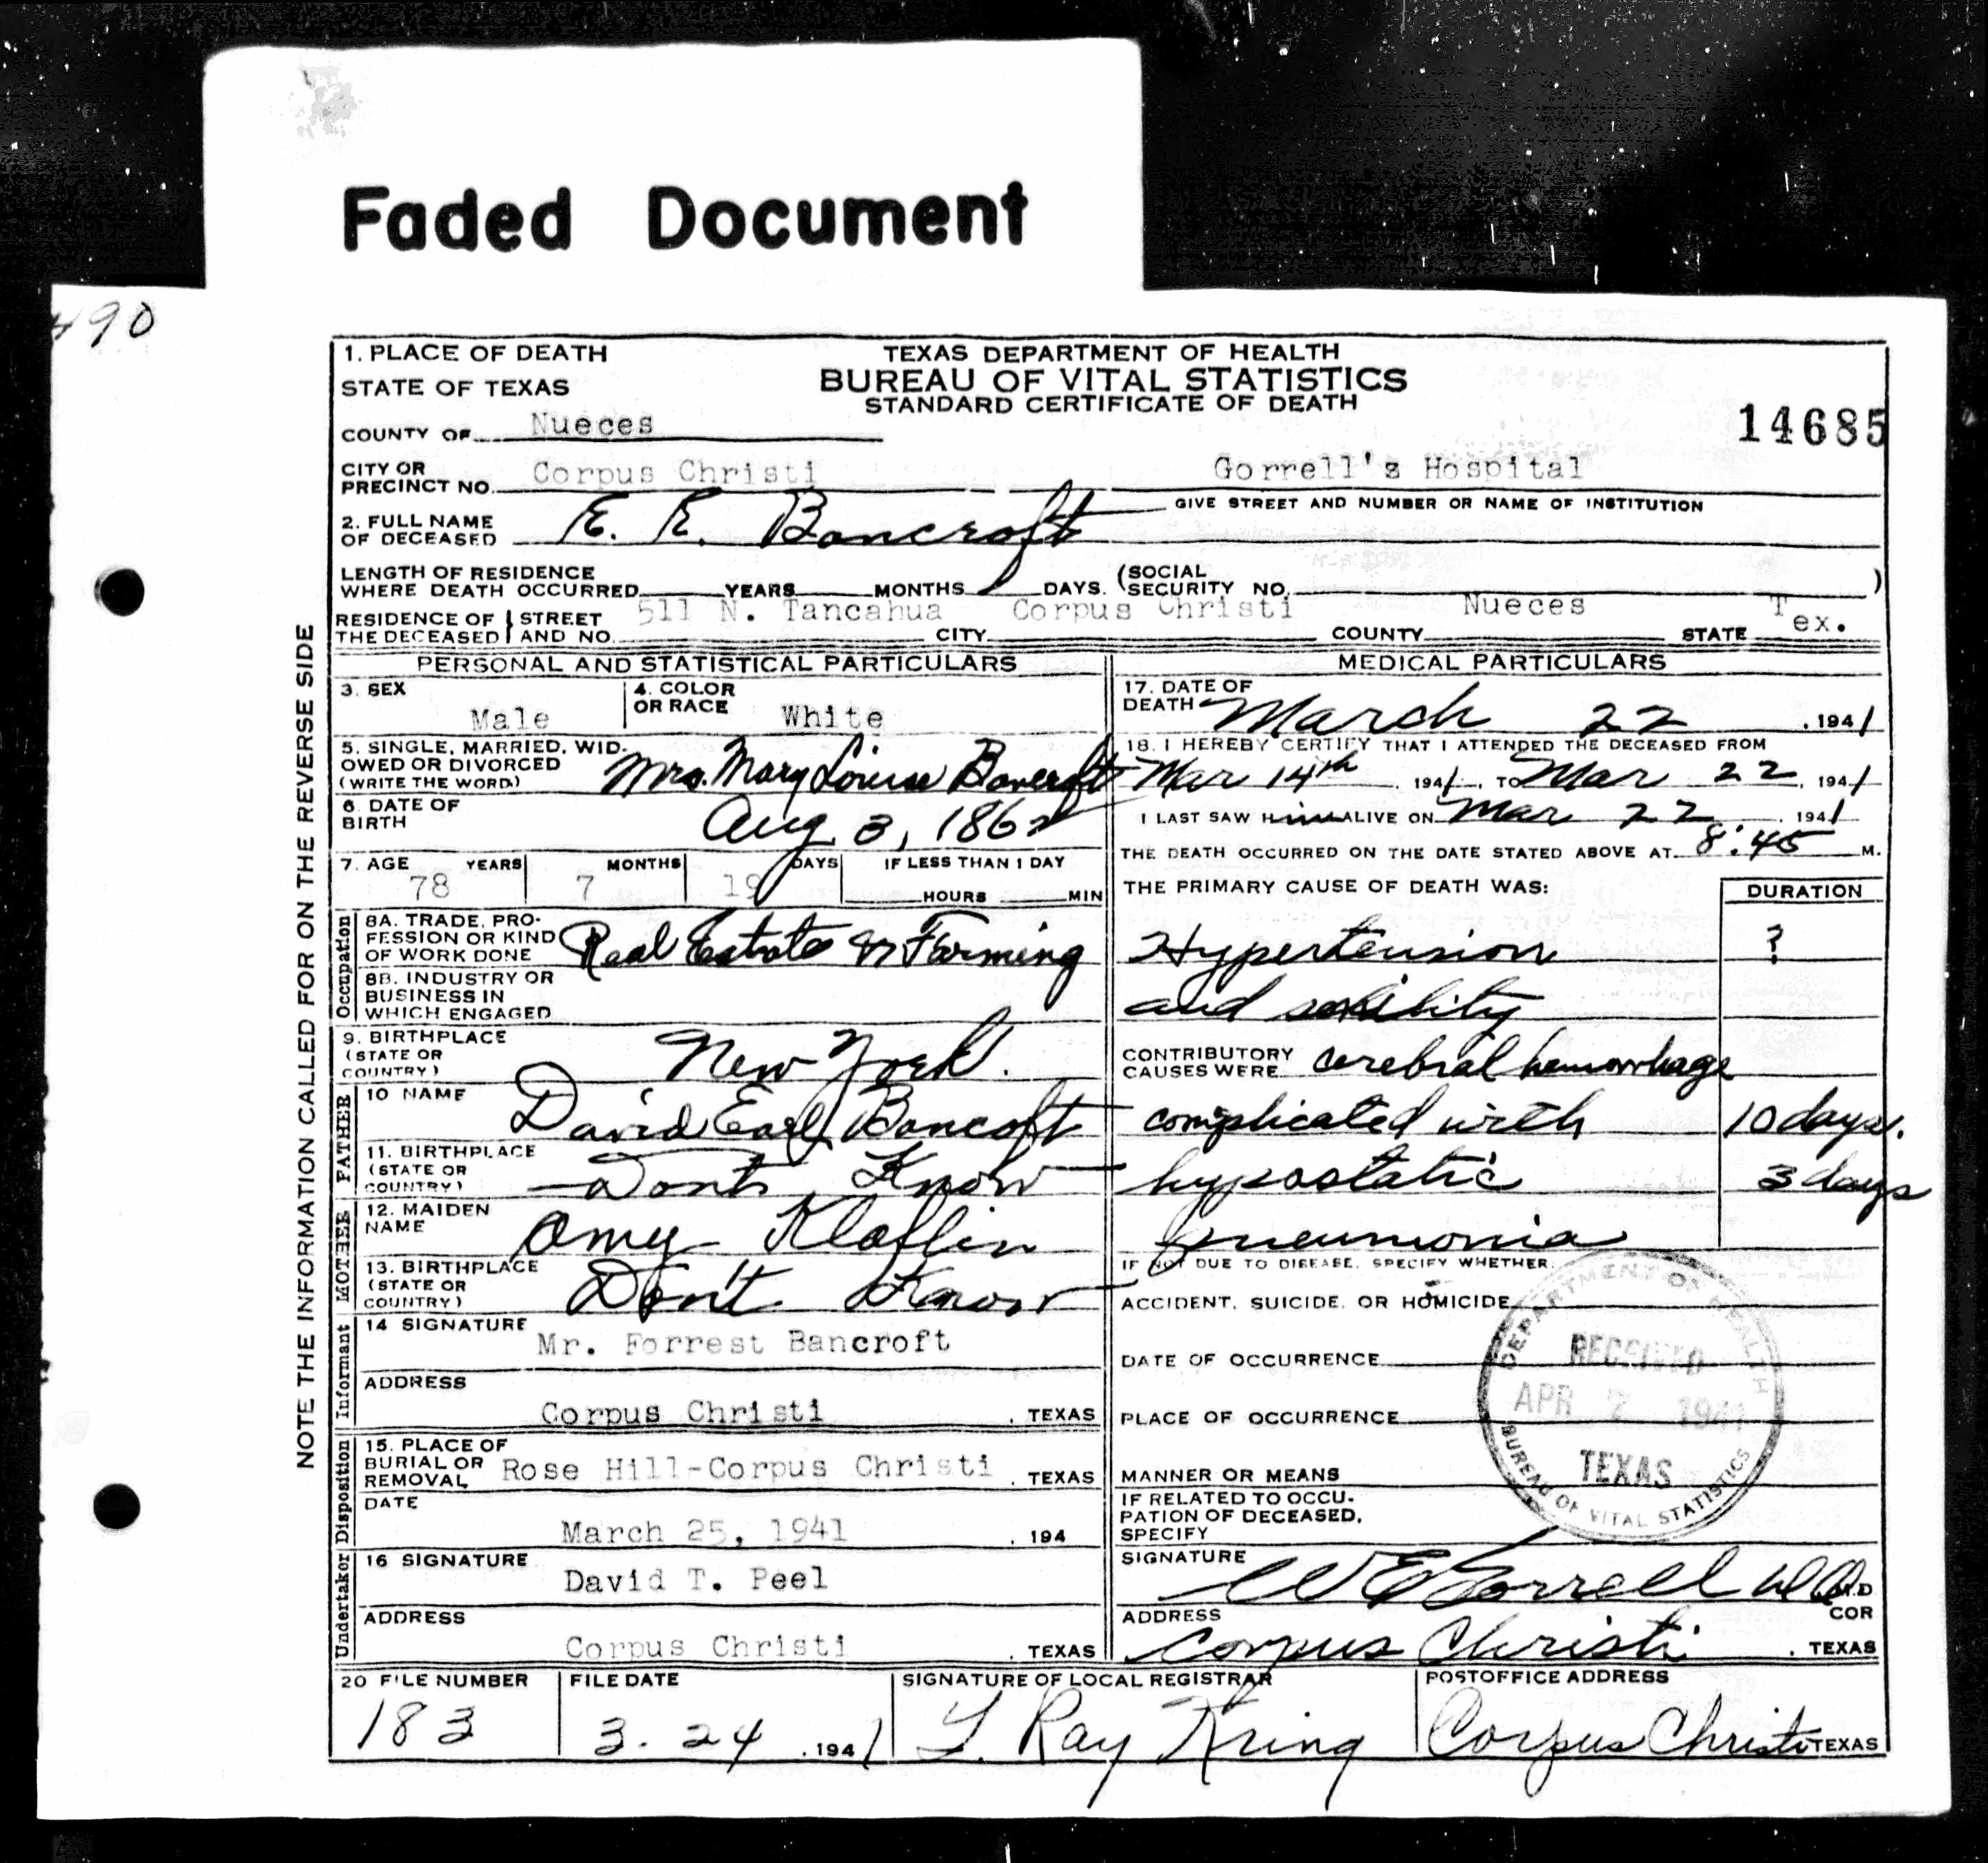 Faded Document
490
1. PLACE OF DEATH
STATE OF TEXAS
TEXAS DEPARTMENT OF HEALTH
BUREAU OF VITAL STATISTICS
STANDARD CERTIFICATE OF DEATH
COUNTY OF Nueces
14685
CITY OR PRECINCT NO. Corpus Christi
Gorrell's Hospital
GIVE STREET AND NUMBER OR NAME OF INSTITUTION
2. FULL NAME OF DECEASED E. E. Bancroft
LENGTH OF RESIDENCE WHERE DEATH OCCURRED YEARS MONTHS DAYS. (SOCIAL SECURITY NO. )
RESIDENCE OF THE DECEASED STREET AND NO. 511 N. Tancahua CITY Corpus Christi COUNTY Nueces STATE Tex.
NOTE THE INFORMATION CALLED FOR ON THE REVERSE SIDE
PERSONAL AND STATISTICAL PARTICULARS
3. SEX Male
4. COLOR OR RACE White
5. SINGLE, MARRIED, WIDOWED OR DIVORCED (WRITE THE WORD) Mrs. Mary Louise Bancroft
6. DATE OF BIRTH Aug 3, 1862
7. AGE YEARS 78 MONTHS 7 DAYS 19 IF LESS THAN 1 DAY HOURS MIN
Occupation
8A. TRADE, PROFESSION OR KIND OF WORK DONE Real Estate & Farming
8B. INDUSTRY OR BUSINESS IN WHICH ENGAGED
9. BIRTHPLACE (STATE OR COUNTRY) New York.
FATHER
10 NAME David Earl Bancoft
11. BIRTHPLACE (STATE OR COUNTRY) Dont Know
MOTHER
12. MAIDEN NAME Amy Klaflin
13. BIRTHPLACE (STATE OR COUNTRY) Don't Know
Informant
14 SIGNATURE Mr. Forrest Bancroft
ADDRESS Corpus Christi, TEXAS
Disposition
15. PLACE OF BURIAL OR REMOVAL Rose Hill-Corpus Christi, TEXAS
DATE March 25, 1941, 194
Undertaker
16 SIGNATURE David T. Peel
ADDRESS Corpus Christi, TEXAS
MEDICAL PARTICULARS
17. DATE OF DEATH March 22, 1941
18. I HEREBY CERTIFY THAT I ATTENDED THE DECEASED FROM
Mar 14th, 1941, TO Mar 22, 1941
I LAST SAW Him ALIVE ON Mar 22, 1941
THE DEATH OCCURRED ON THE DATE STATED ABOVE AT 8:45 M.
THE PRIMARY CAUSE OF DEATH WAS: DURATION
Hypertension ?
and senility
CONTRIBUTORY CAUSES WERE cerebral hemorrhage
complicated with 10 days.
hypostatic 3 days
pneumonia
IF NOT DUE TO DISEASE, SPECIFY WHETHER
ACCIDENT, SUICIDE, OR HOMICIDE
DATE OF OCCURRENCE
PLACE OF OCCURRENCE
MANNER OR MEANS
IF RELATED TO OCCUPATION OF DECEASED, SPECIFY
DEPARTMENT OF HEALTH
RECEIVED
APR 7 1941
TEXAS
BUREAU OF VITAL STATISTICS
SIGNATURE W E Gorrell M.D. M.D
COR
ADDRESS Corpus Christi, TEXAS
20 FILE NUMBER 183
FILE DATE 3-24, 1941
SIGNATURE OF LOCAL REGISTRAR L. Ray Kring
POSTOFFICE ADDRESS Corpus Christi TEXAS